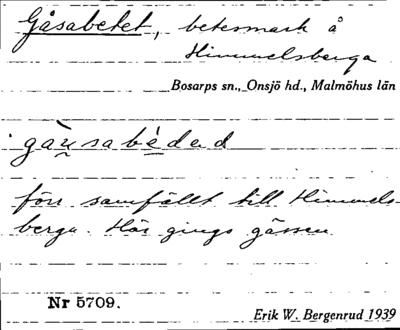 Gåsabetet, betesmark å
Himmelsberga
Bosarps sn., Onsjö hd., Malmöhus län
gàu̯sabèdəd
förr samfällt till Himmels-
berga. Här gingo gässen
Nr 5709.
Erik W. Bergenrud 1939